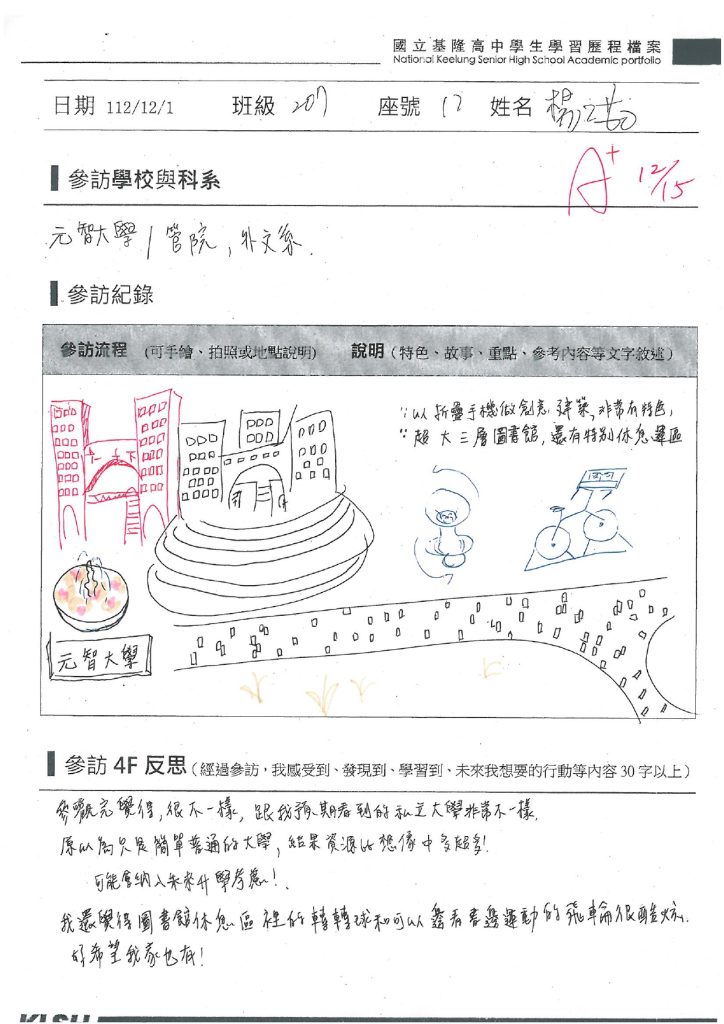 國立基隆高中學生學習歷程檔案
National Keelung Senior High School Academic portfolio
日期 112/12/1 班級 207 座號 17 姓名 楊
A+ 12/15
參訪學校與科系
元智大學 / 管院, 外文系.
參訪紀錄
參訪流程 (可手繪、拍照或地點說明) 說明 (特色、故事、重點、參考內容等文字敘述)
以折疊手機做創意建築, 非常有特色,
超大三層圖書館, 還有特別休息運區
元智大學
參訪 4F 反思 (經過參訪,我感受到、發現到、學習到、未來我想要的行動等內容 30 字以上)
參觀完覺得, 很不一樣, 跟我預期看到的私立大學非常不一樣.
原以為只是簡單普通的大學, 結果資源比想像中多超多!
可能會納入未來升學考慮!
我還覺得圖書館休息區裡的轉轉球和可以邊看書邊運動的飛輪很酷炫.
好希望我家也有!
KLSH